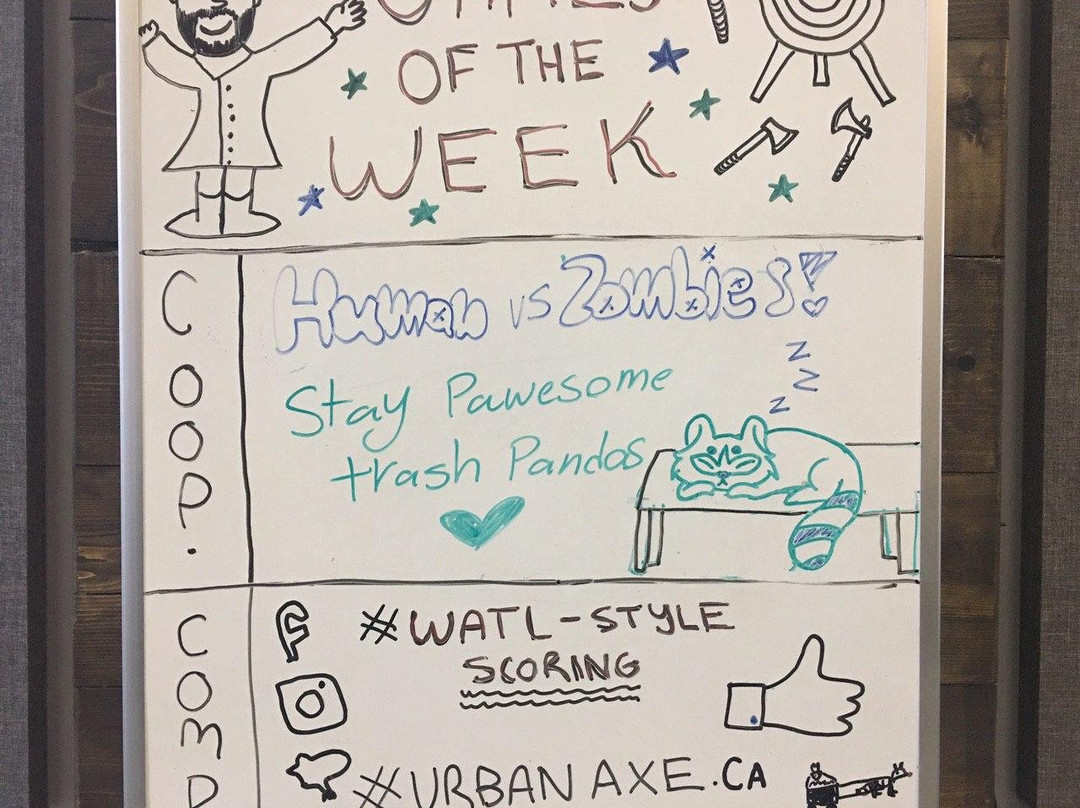 GAMES
OF THE
WEEK
COOP.
Human vs Zombies!
Stay Pawesome
trash Pandas
z
z
z
COMP
#WATL-STYLE
SCORING
#URBANAXE.CA